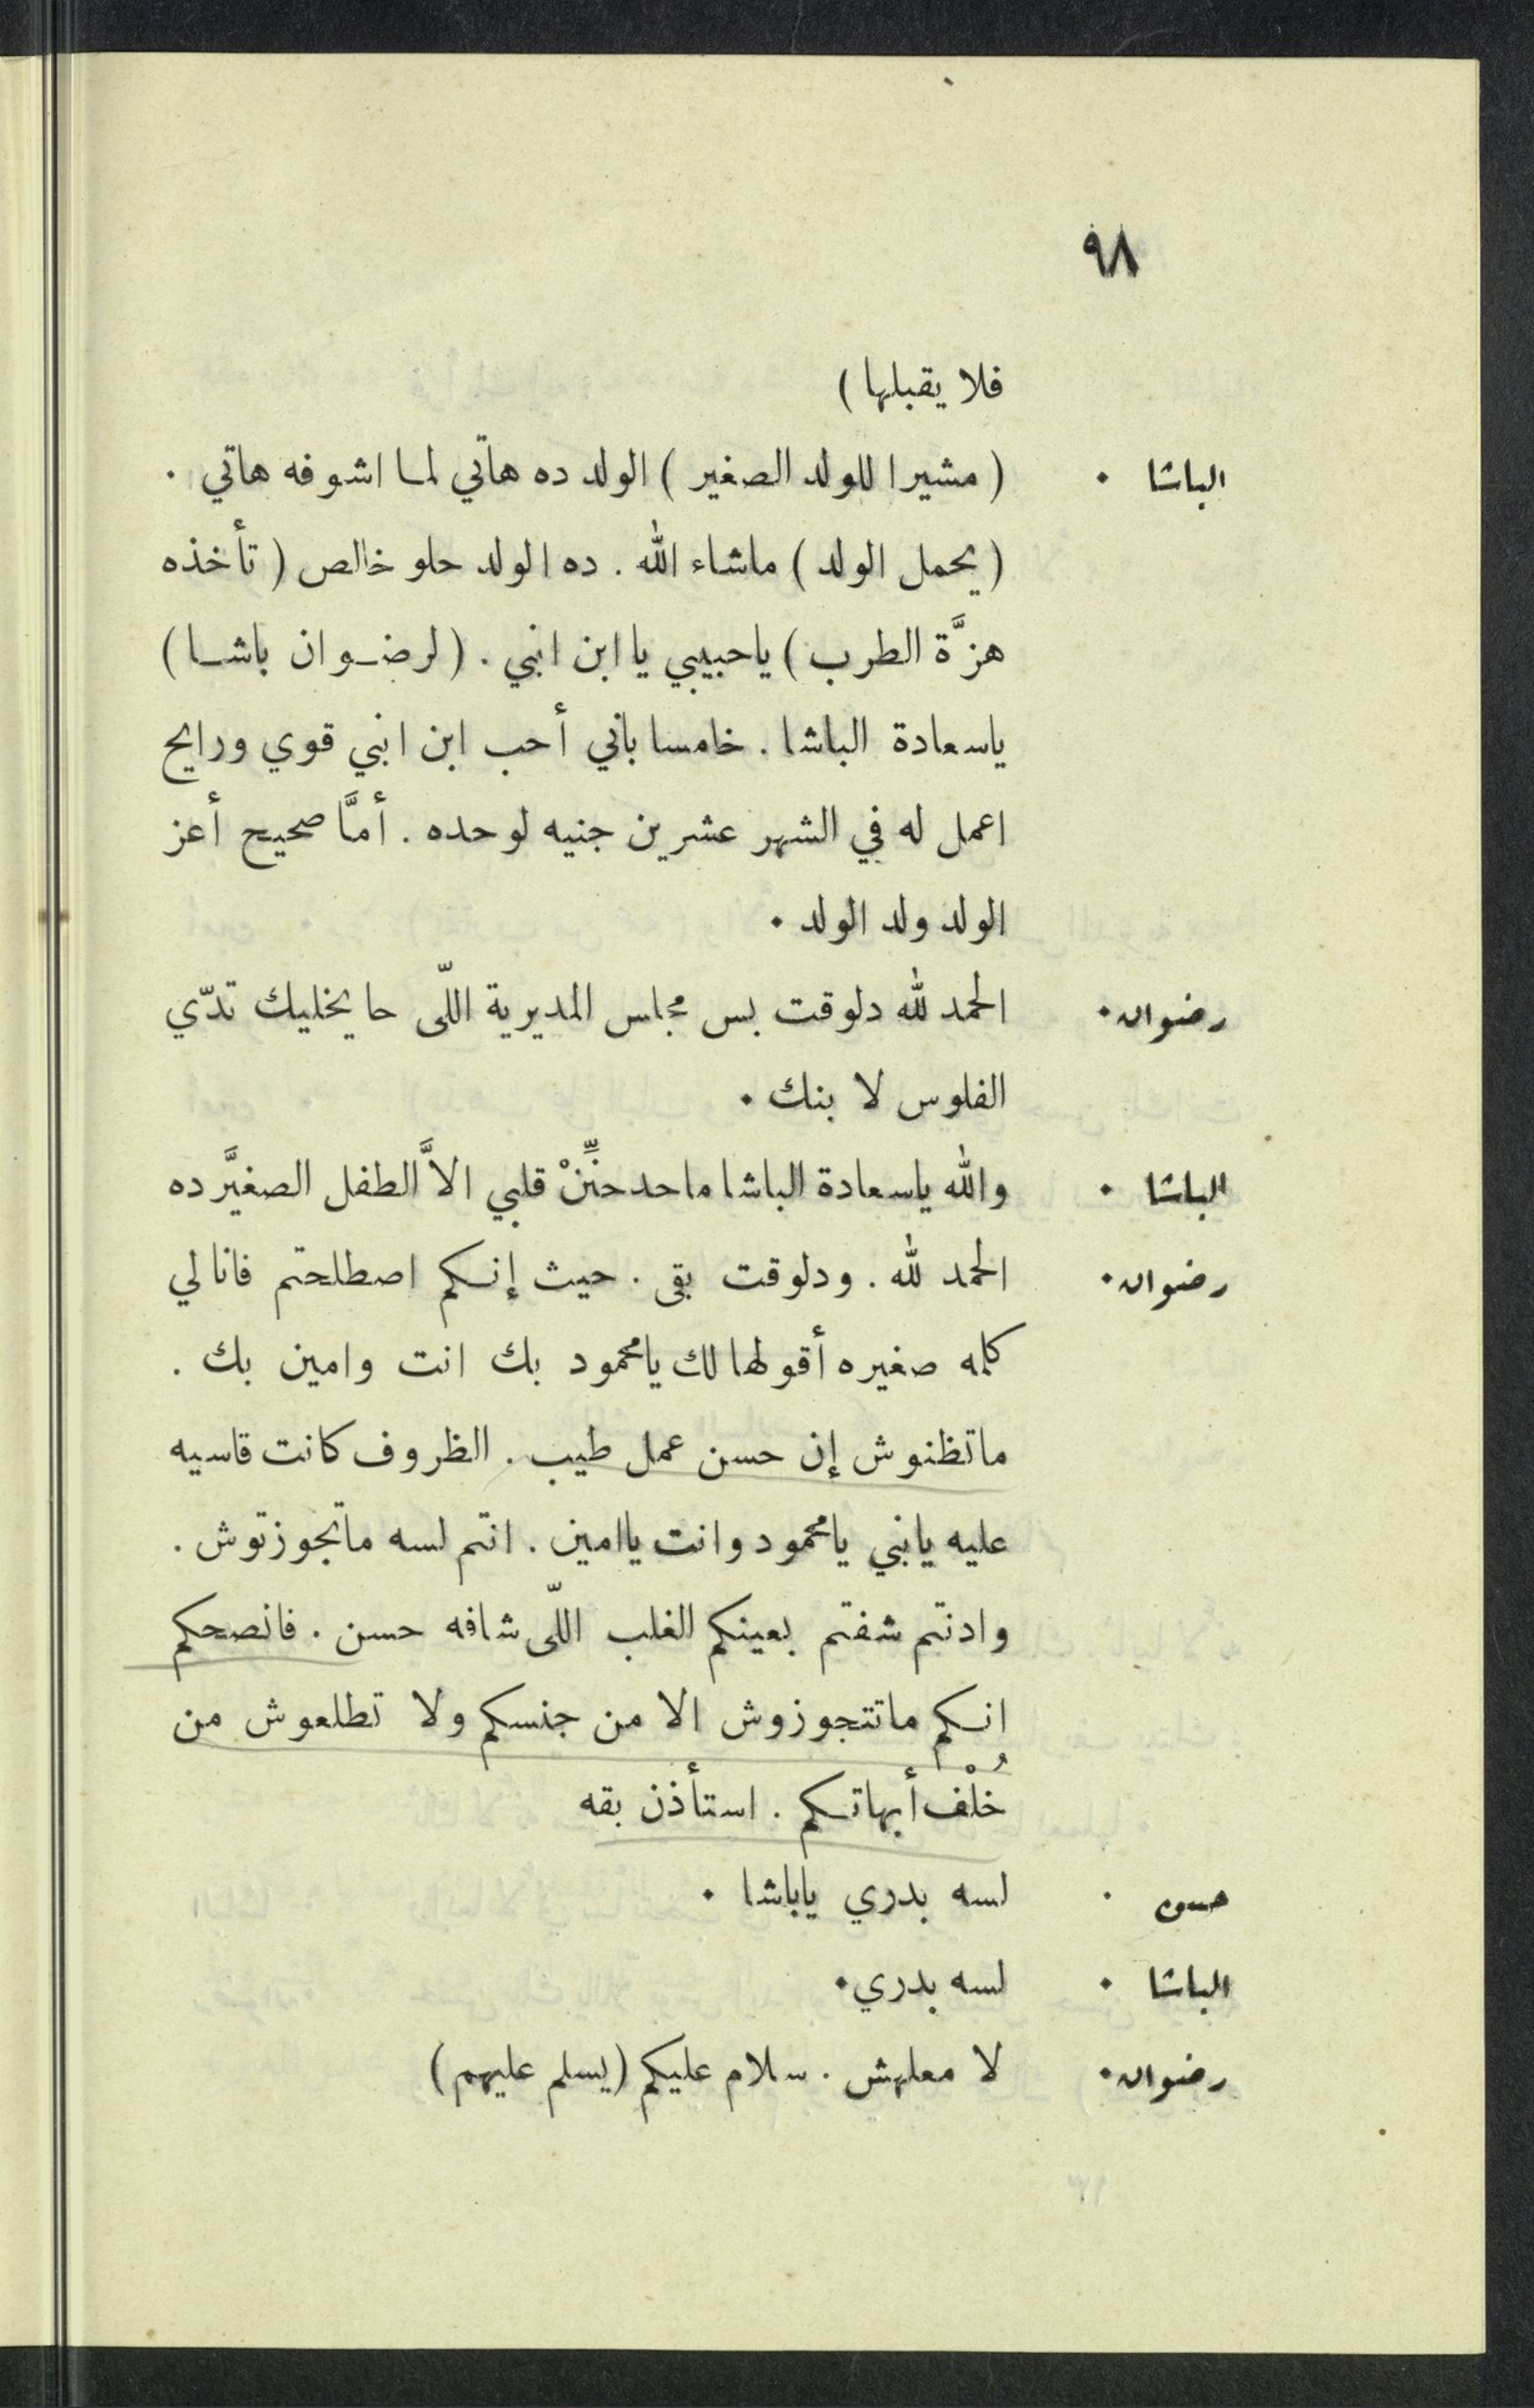 ٩٨
فلا يقبلها )
الباشا . ( مشيرا للولد الصغير ) الولد ده هاتي لما اشوفه هاتي .
( يحمل الولد ) ماشاء الله . ده الولد حلو خالص ( تأخذه
هزَّة الطرب ) ياحبيبي يا ابن ابني . ( لرضوان باشا )
ياسعادة الباشا . خامسا باني أحب ابن ابني قوي ورايح
اعمل له في الشهر عشرين جنيه لوحده . أمَّا صحيح أعز
الولد ولد الولد .
رضوان . الحمد لله دلوقت بس مجلس المديرية اللّى حايخليك تدّي
الفلوس لابنك .
الباشا . والله ياسعادة الباشا ماحد حنِّنْ قلبي الاَّ الطفل الصغيَّر ده
رضوان . الحمد لله . ودلوقت بقى . حيث إنكم اصطلحتم فانا لي
كلمه صغيره أقولها لك يامحمود بك انت وامين بك .
ماتظنوش إن حسن عمل طيب . الظروف كانت قاسيه
عليه يابني يامحمود وانت ياامين . انتم لسه ماتجوزتوش .
وادنتم شفتم بعينكم الغلب اللّى شافه حسن . فانصحكم
انكم ماتتجوزوش الا من جنسكم ولا تطلعوش من
خُلْف أبهاتكم . استأذن بقه
حسن . لسه بدري ياباشا .
الباشا . لسه بدري .
رضوان . لا معلهش . سلام عليكم ( يسلم عليهم )